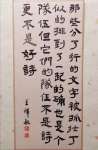 那些分了行的文字被派上了
似的排到了一起的确也是个
隊伍但它們的隊伍不是詩
更不是好詩